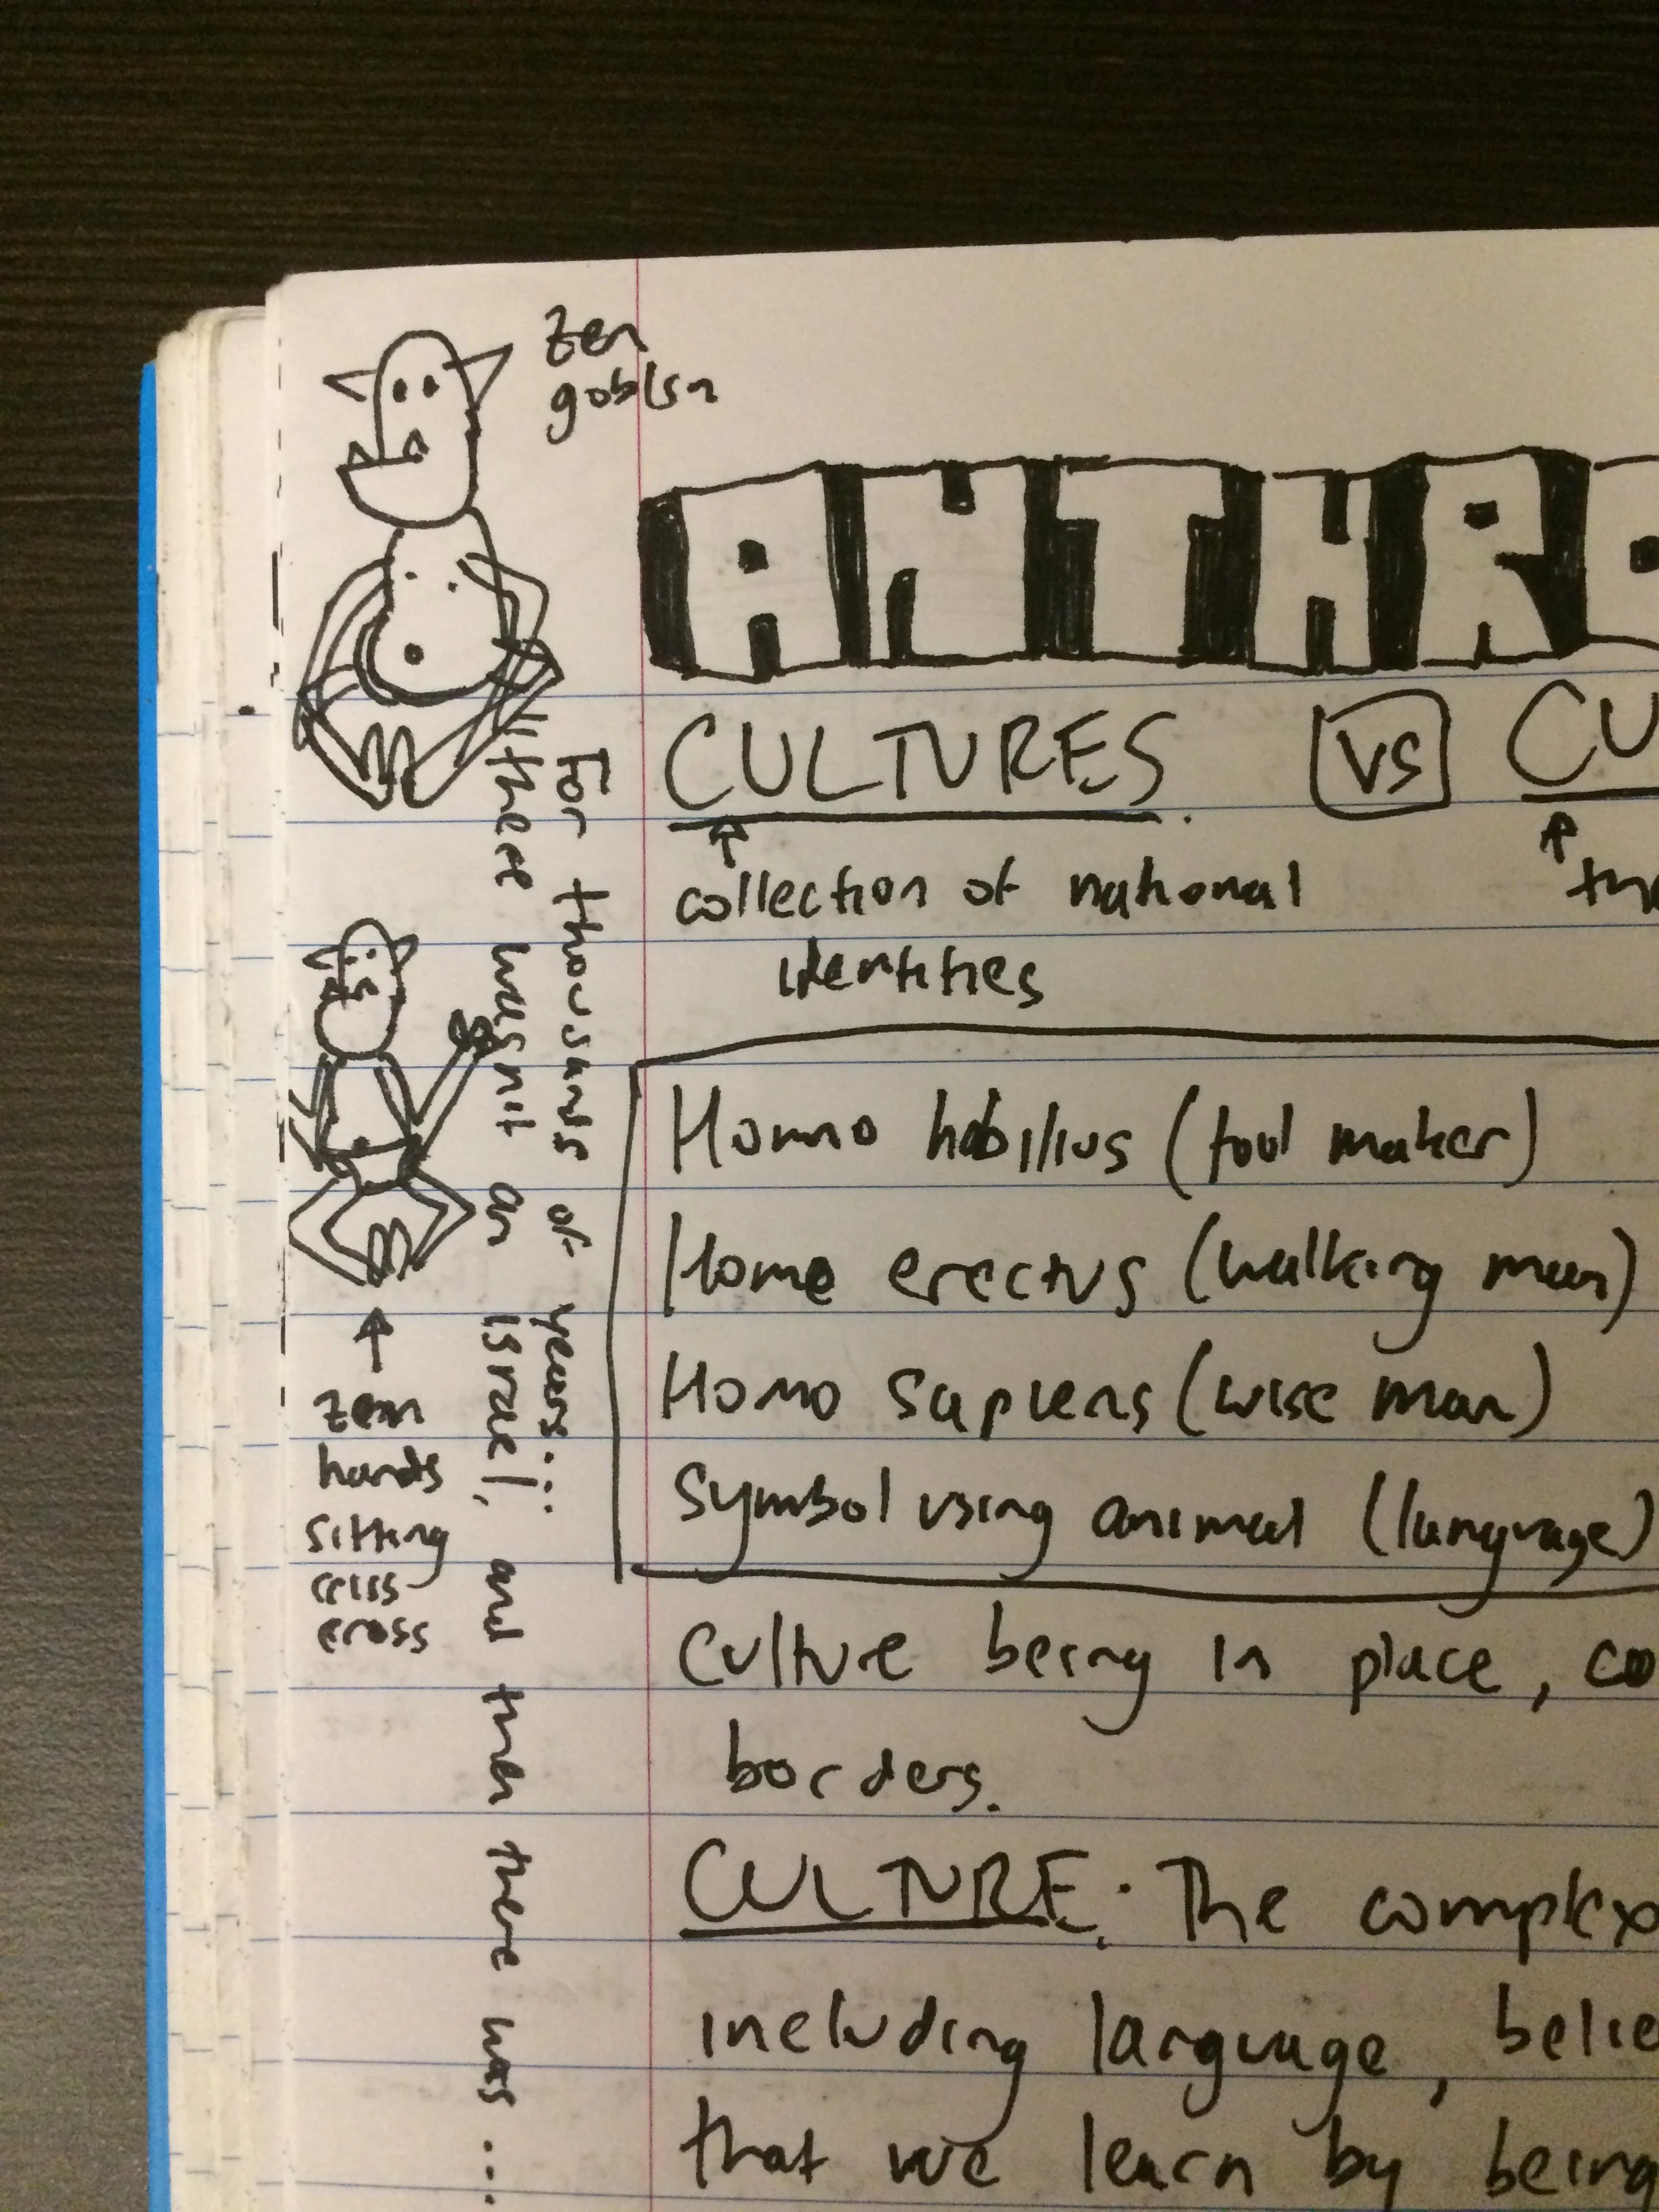 zen
goblin
ANTHRO
CULTURES VS CU
collection of national
identities
Homo habilius (tool maker)
Homo erectus (walking man)
Homo Sapiens (wise man)
Symbol using animal (language)
Culture being in place, co
borders.
CULTURE: The complex
including language, belie
that we learn by being
For thousands of years...
"there wasn't an israel, and then there was ...
zen
hands
sitting
criss
cross